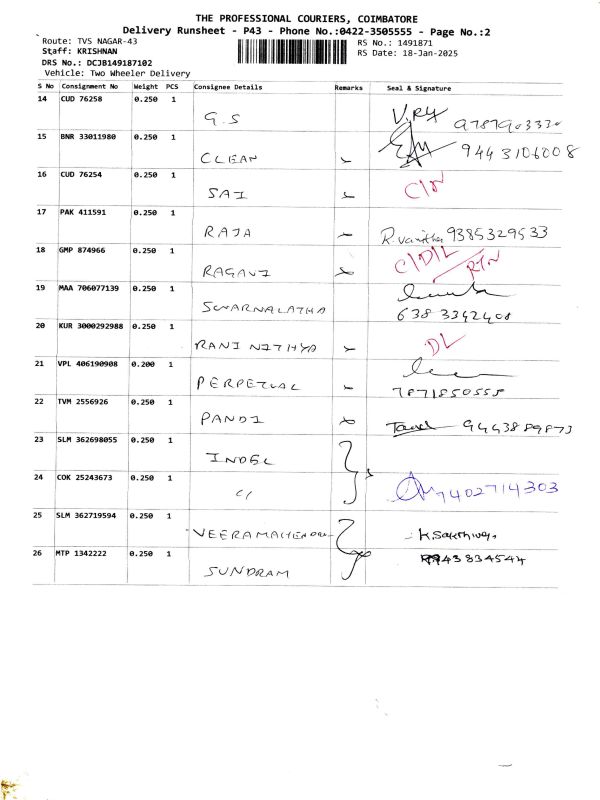 THE PROFESSIONAL COURIERS, COIMBATORE
Delivery Runsheet - P43 - Phone No.:0422-3505555 - Page No.:2
Route: TVS NAGAR-43 RS No.: 1491871
Staff: KRISHNAN RS Date: 18-Jan-2025
DRS No.: DCJB149187102
Vehicle: Two Wheeler Delivery
S No Consignment No Weight PCS Consignee Details Remarks Seal & Signature
14 CUD 76258 0.250 1
G.S 9787903330
15 BNR 33011980 0.250 1
CLEAN 9443106008
16 CUD 76254 0.250 1
SAI
17 PAK 411591 0.250 1
RAJA R.vanitha 9385329533
18 GMP 874966 0.250 1
RAGAVI C/D/L RTN
19 MAA 706077139 0.250 1
SUWARNALATHA 638 3342408
20 KUR 3000292988 0.250 1
RANI NITHYA DL
21 VPL 406190908 0.200 1
PERPETUAL 7871850555
22 TVM 2556926 0.250 1
PANDI 9443889873
23 SLM 362698055 0.250 1
INDEL
24 COK 25243673 0.250 1
7402714303
25 SLM 362719594 0.250 1
26 MTP 1342222 0.250 1
SUNDRAM